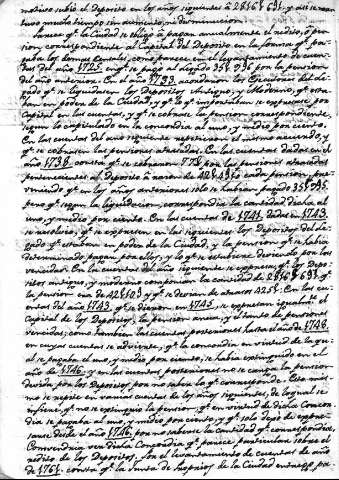 motivo subió el Deposito en los años siguientes á 281,6 $ 69 l. y asi se man
tuvo mucho tiempo sin aumento, ni diminucion.
Parece q.e la Ciudad se obligó á pagar anualmente el redito, ó pen
sion correspondiente al Capital del Deposito en la forma q.e pa
gaba los demas Censales, como parece en el levantamiento de cuen
tas del año 1725. en q.e se pagó el segundo por la pension
del año anterior. En el año 1733. acordaron los Electores del de
pado q.e se liquidasen los Depositos Antiguo, y Moderno, q.e esta
ban en poder de la Ciudad, y q.e lo q.e importaban se expresase por
Capital en las cuentas, y q.e se cobrasen las pensiones correspondientes,
segun lo capitulado en la concordia al uno, y medio por ciento.
En las cuentas del año siguiente repitieron el mismo acuerdo, y
q.e se cobrasen las pensiones atrasadas. En las cuentas dadas en el
año 1738. consta q.e se cobraron por las pensiones atrasadas
pertenecientes al Deposito á razon de cada pension, pre
viniendo q.e en los años anteriores solo se habian pagado
pero q.e segun la liquidacion, correspondia la cantidad dicha al
uno, y medio por ciento. En las cuentas de 1741. dadas en 1743.
se resolvió, q.e se expresen en las siguientes los Depositos del de
pado q.e estaban en poder de la Ciudad, y la pension q.e se habia
determinado pagar por ellos, y lo q.e se estubiere deviendo por los
vencidas. En la cuentas del año siguiente se expresa, q.e los Depo
sitos antiguo, y moderno componian la cantidad de q.e
la pension era de y q.e se devian de atrasos En las cu
entas del año 1743. q.e se dieron en 1745. se expresan igualm.te el
Capital de los Depositos, la pension anua, y el tanto de pensiones
vencidas; como tambien las cuentas posteriores hasta el año de 1748.
en cuyas cuentas se advierte, q.e la concordia en virtud de la qu
al se pagaba el uno, y medio por ciento, se habia extinguido en el
año de 1746. y en las cuentas posteriores no se carga la pension
devida por los Depositos por no saber la q.e corresponde. Esta mis
mo se repite en varias cuentas de los años siguientes, de lo qual se
infiere, q.e no se extinguió la pension, q.e en virtud de dicha Concor
dia se pagaba al uno, y medio por ciento, y q.e solo dejó de expre
sarse desde el año 1746. por no saberse la cantidad q.e correspondia.
Convendria ver dicha Concordia q.e parece particular sobre el
redito de los Depositos. Por el levantamiento de cuentas de año
de 1761. consta q.e la Junta de Propios de la Ciudad entregó pa